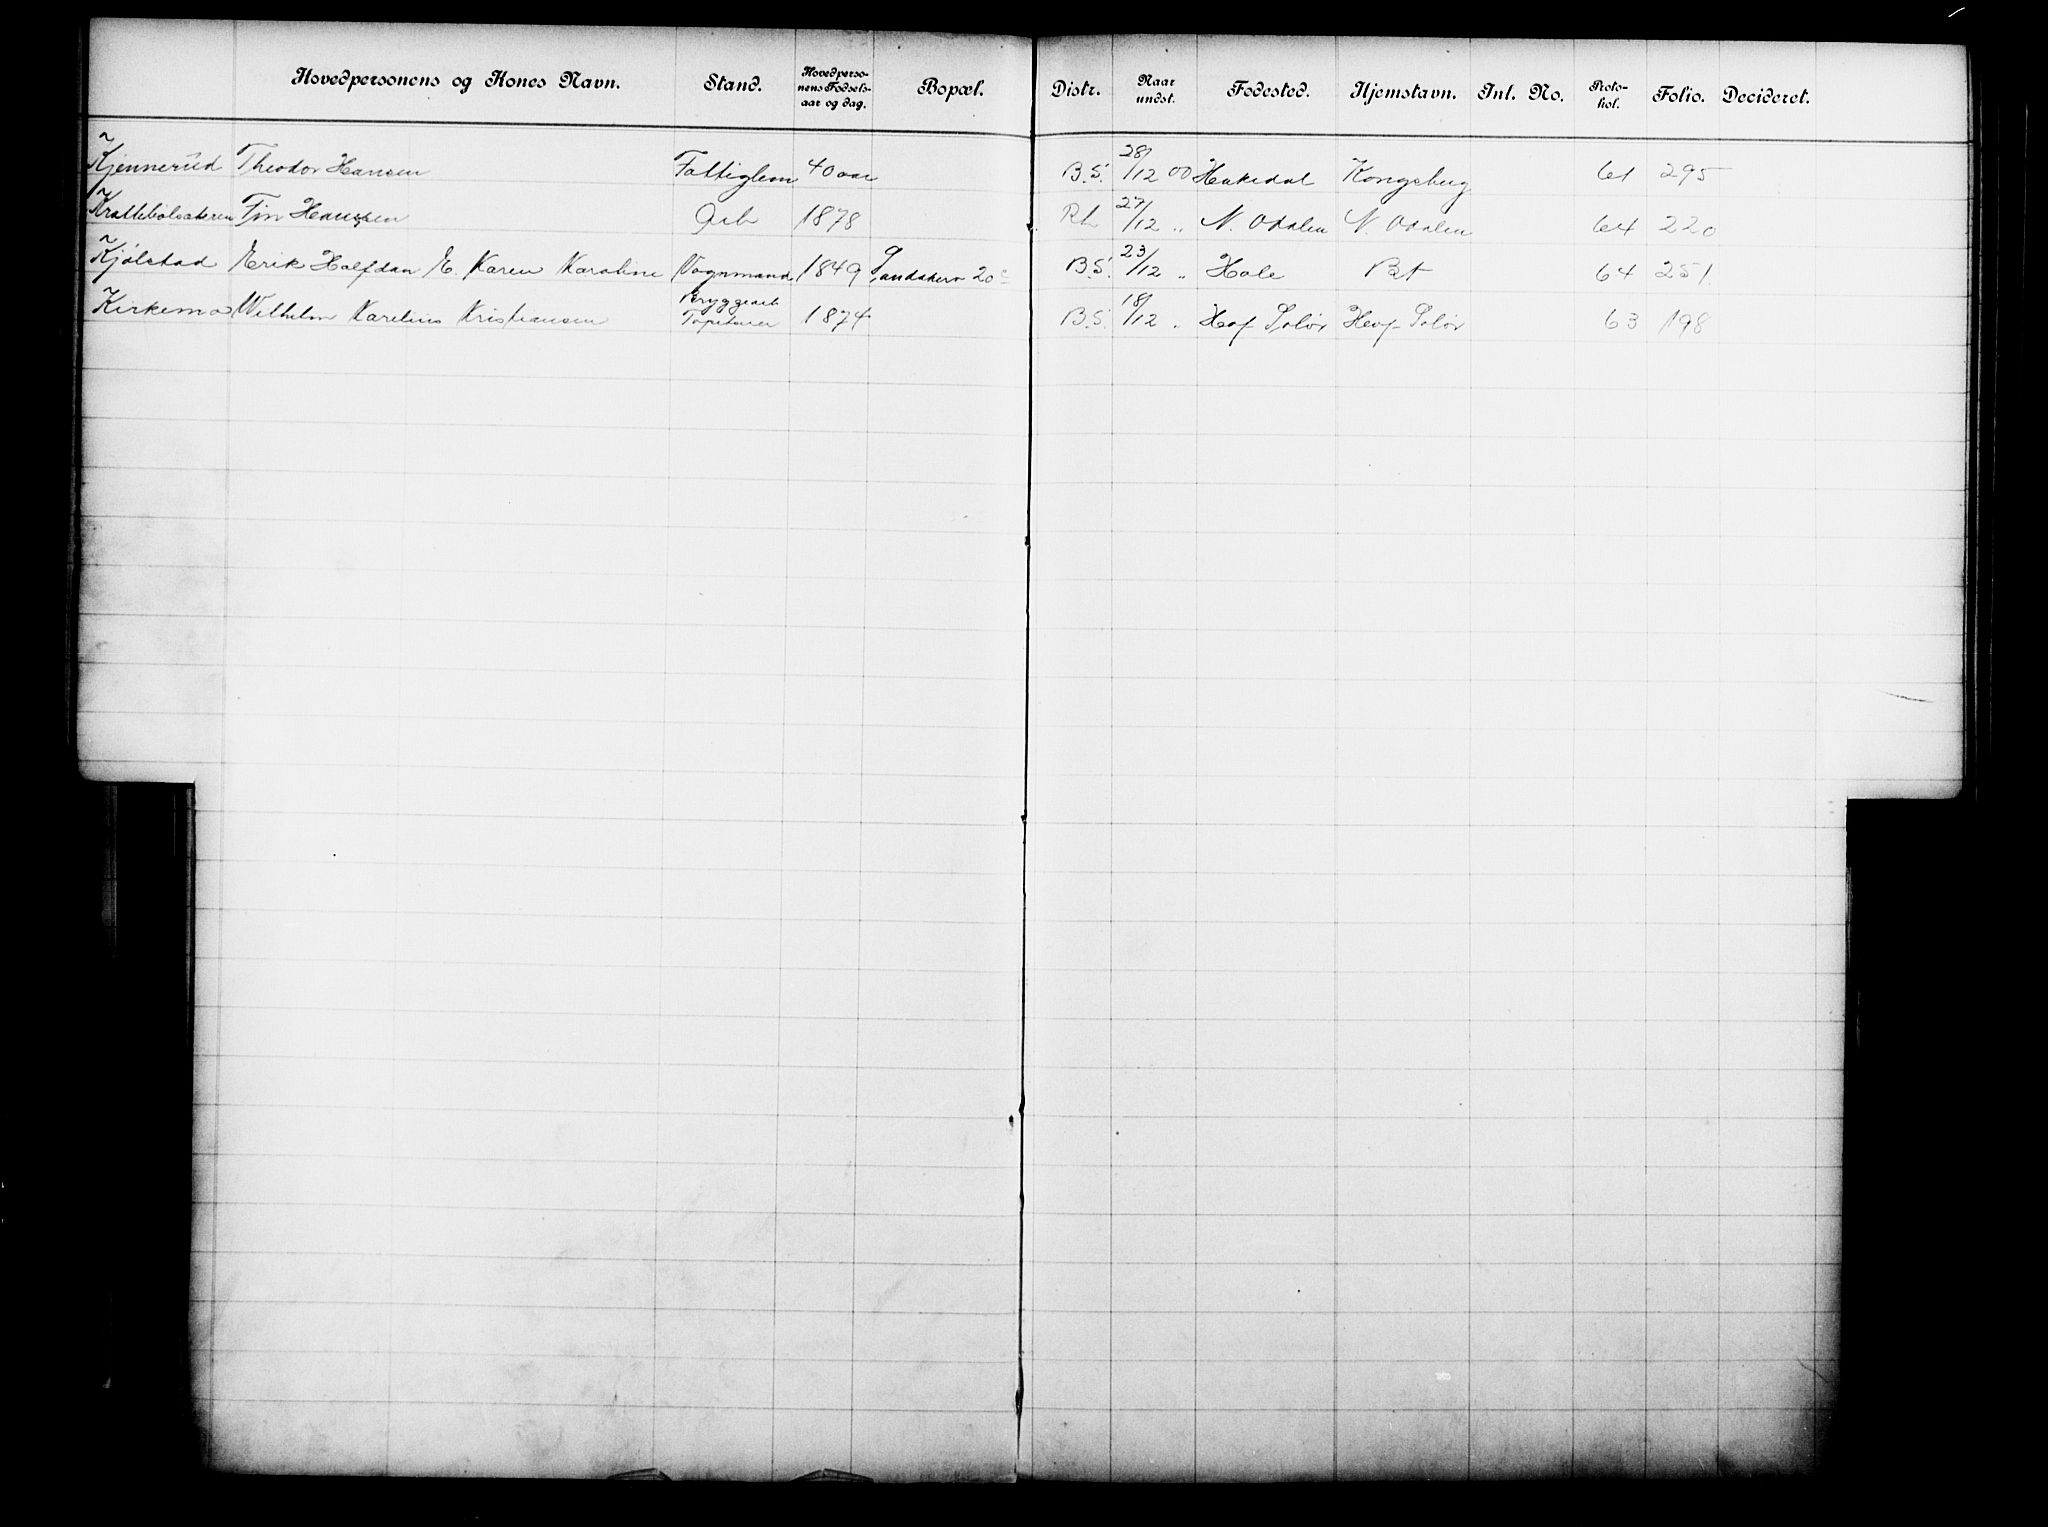 Hovedpersonens og Kones Navn. Stand. Hovedperso-nens Fødsels-aar og dag. Bopæl. Distr. Naar undst. Fødested. Hjemstavn. Int. No. Proto-kol. Folio. Decideret.
Kjennerud Theodor Hansen Fattiglem 40 aar B.S. 28/12 00 Hakedal Kongsberg 61 295
Krattebølsateren Finn Hansen Arb 1878 Rh 27/12 " N. Odalen N. Odalen 64 220
Kjølstad Erik Halfdan E. Karen Karoline Vognmand 1849 Sandakerv 20c B.S. 23/12 " Hole 64 251.
Kirkemo Wilhelm Karelius Kristiansen Bryggearb Tapetserer 1874 B.S. 18/12 " Hof Solør Hof Solør 63 198